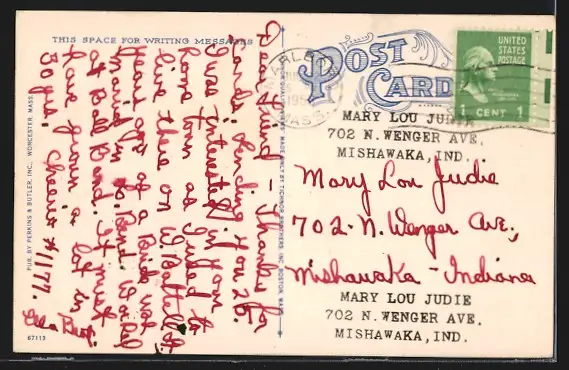 THIS SPACE FOR WRITING MESSAGES
Dear Friend - Thanks for
cards. Sending you 25.
I was interested in your
home town as I used to
live there on W. Battell St.
years ago as a Bride was
married in So. Bend. Worked
at Ball Band. It must
have grown a lot in
30 yrs. Cheerio #1177.
PUB. BY PERKINS & BUTLER, INC., WORCESTER, MASS.
67112
POST
CARD
UNITED
STATES
POSTAGE
CENT 1
MASS.
MARY LOU JUDIE
702 N. WENGER AVE.
MISHAWAKA, IND.
Mary Lou Judie
702-N. Wenger Ave.,
Mishawaka - Indiana
MARY LOU JUDIE
702 N. WENGER AVE.
MISHAWAKA, IND.